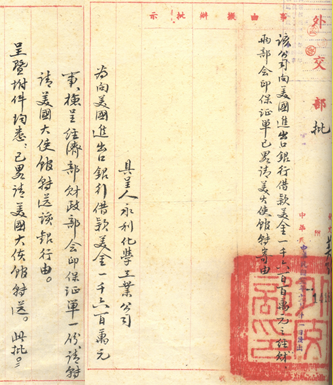 外交部批
事由擬辦批示
該公司向美國進出口銀行借款美金一千六百萬元之經財
兩部會印保証單已畧請美大使館轉寄由
具呈人永利化學工業公司
為向美國進出口銀行借款美金一千六百萬元
事，檢呈經濟部財政部會印保證單一份，請轉
請美國大使館轉送該銀行由。
呈暨附件均悉：已畧請美國大使館轉送。此批。